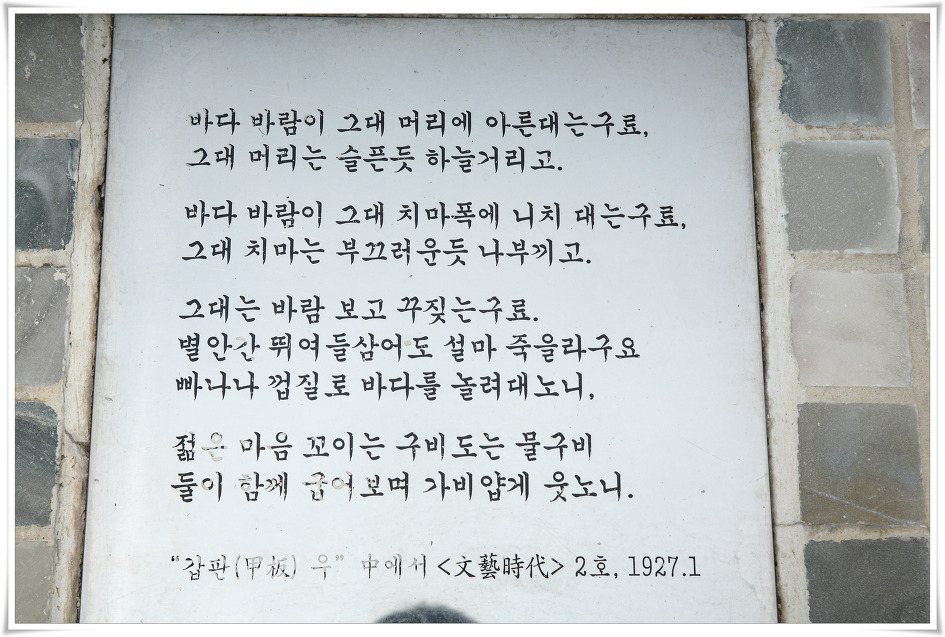 바다 바람이 그대 머리에 아른대는구료,
그대 머리는 슬픈듯 하늘거리고.
바다 바람이 그대 치마폭에 니치 대는구료,
그대 치마는 부끄러운듯 나부끼고.
그대는 바람 보고 꾸짖는구료.
별안간 뛰여들삼어도 설마 죽을라구요
빠나나 껍질로 바다를 놀려대노니,
젊은 마음 꼬이는 구비도는 물구비
둘이 함께 굽어보며 가비얍게 웃노니.
“갑판(甲板) 우” 中에서 <文藝時代> 2호, 1927.1